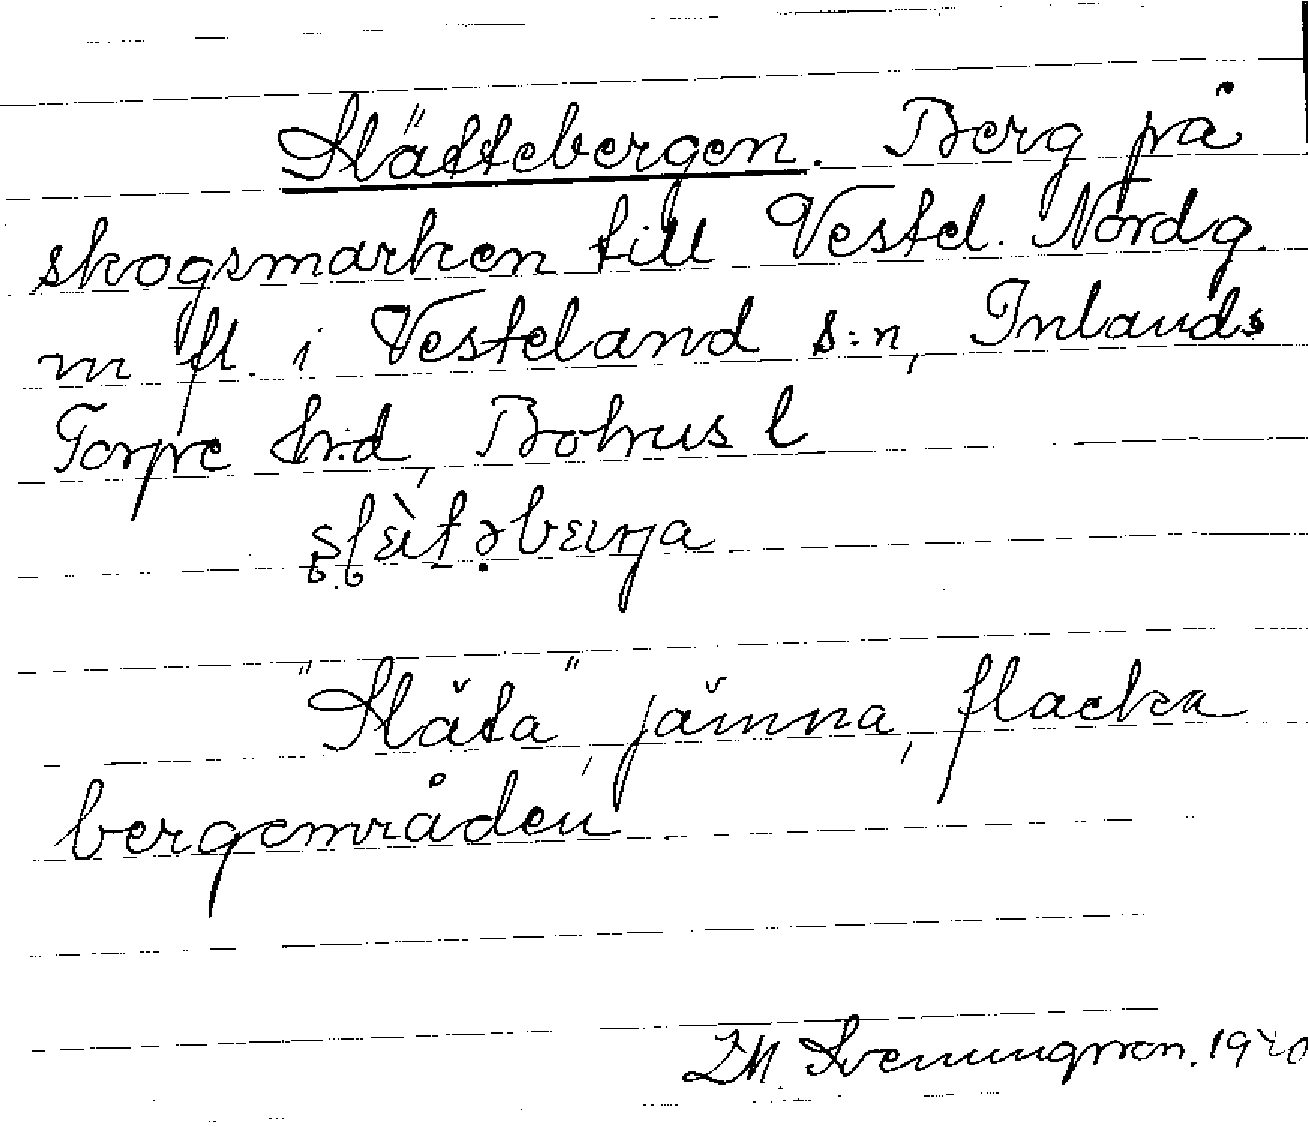 Slättebergen. Berg på
skogsmarken till Vestel. Nordg.
m fl. i Vesteland s:n, Inlands
Torpe hrd, Bohus l
"Släta", jämna, flacka
bergområden
Svenungsson. 1920